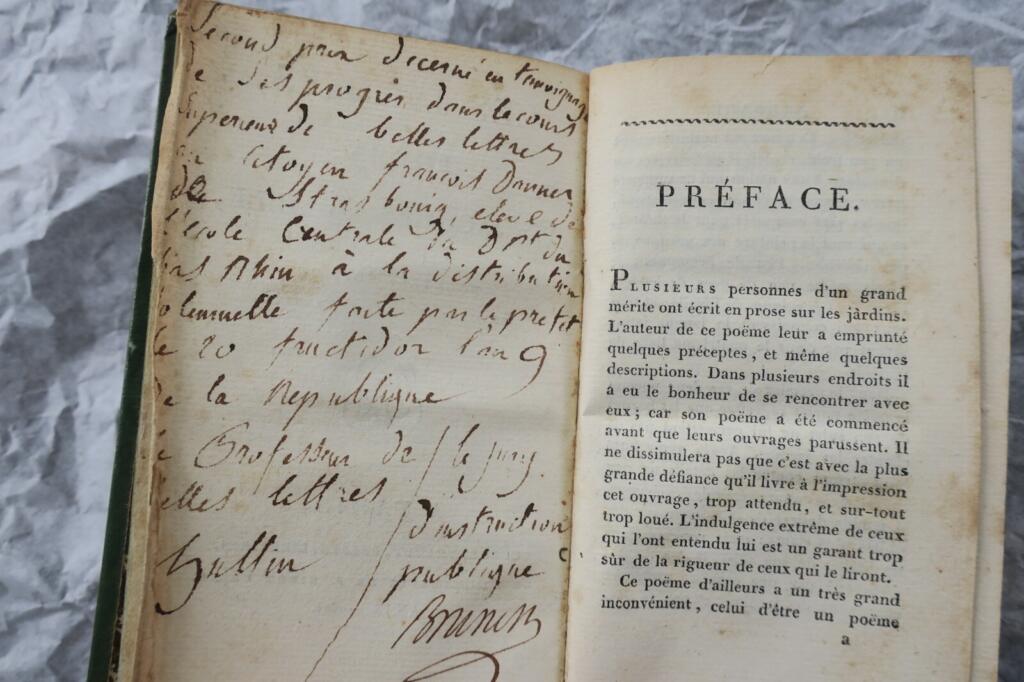 Second prix decerné en temoignage
de ses progrès dans le cours
Superieur de belles lettres
au Citoyen françois
de Strasbourg, eleve de
l'école Centrale du Dpt du
bas Rhin à la distribution
Solemnelle faite par le prefet
le 20 fructidor l'an 9
de la Republique
le Professeur de / le jury
belles lettres
d'instruction
publique
PRÉFACE.
PLUSIEURS personnes d'un grand
mérite ont écrit en prose sur les jârdins.
L'auteur de ce poëme leur a emprunté
quelques préceptes, et même quelques
descriptions. Dans plusieurs endroits il
a eu le bonheur de se rencontrer avec
eux; car son poëme a été commencé
avant que leurs ouvrages parussent. Il
ne dissimulera pas que c'est avec la plus
grande défiance qu'il livre à l'impression
cet ouvrage, trop attendu, et sur-tout
trop loué. L'indulgence extrême de ceux
qui l'ont entendu lui est un garant trop
sûr de la rigueur de ceux qui le liront.
Ce poëme d'ailleurs a un très grand
inconvénient, celui d'être un poëme
a